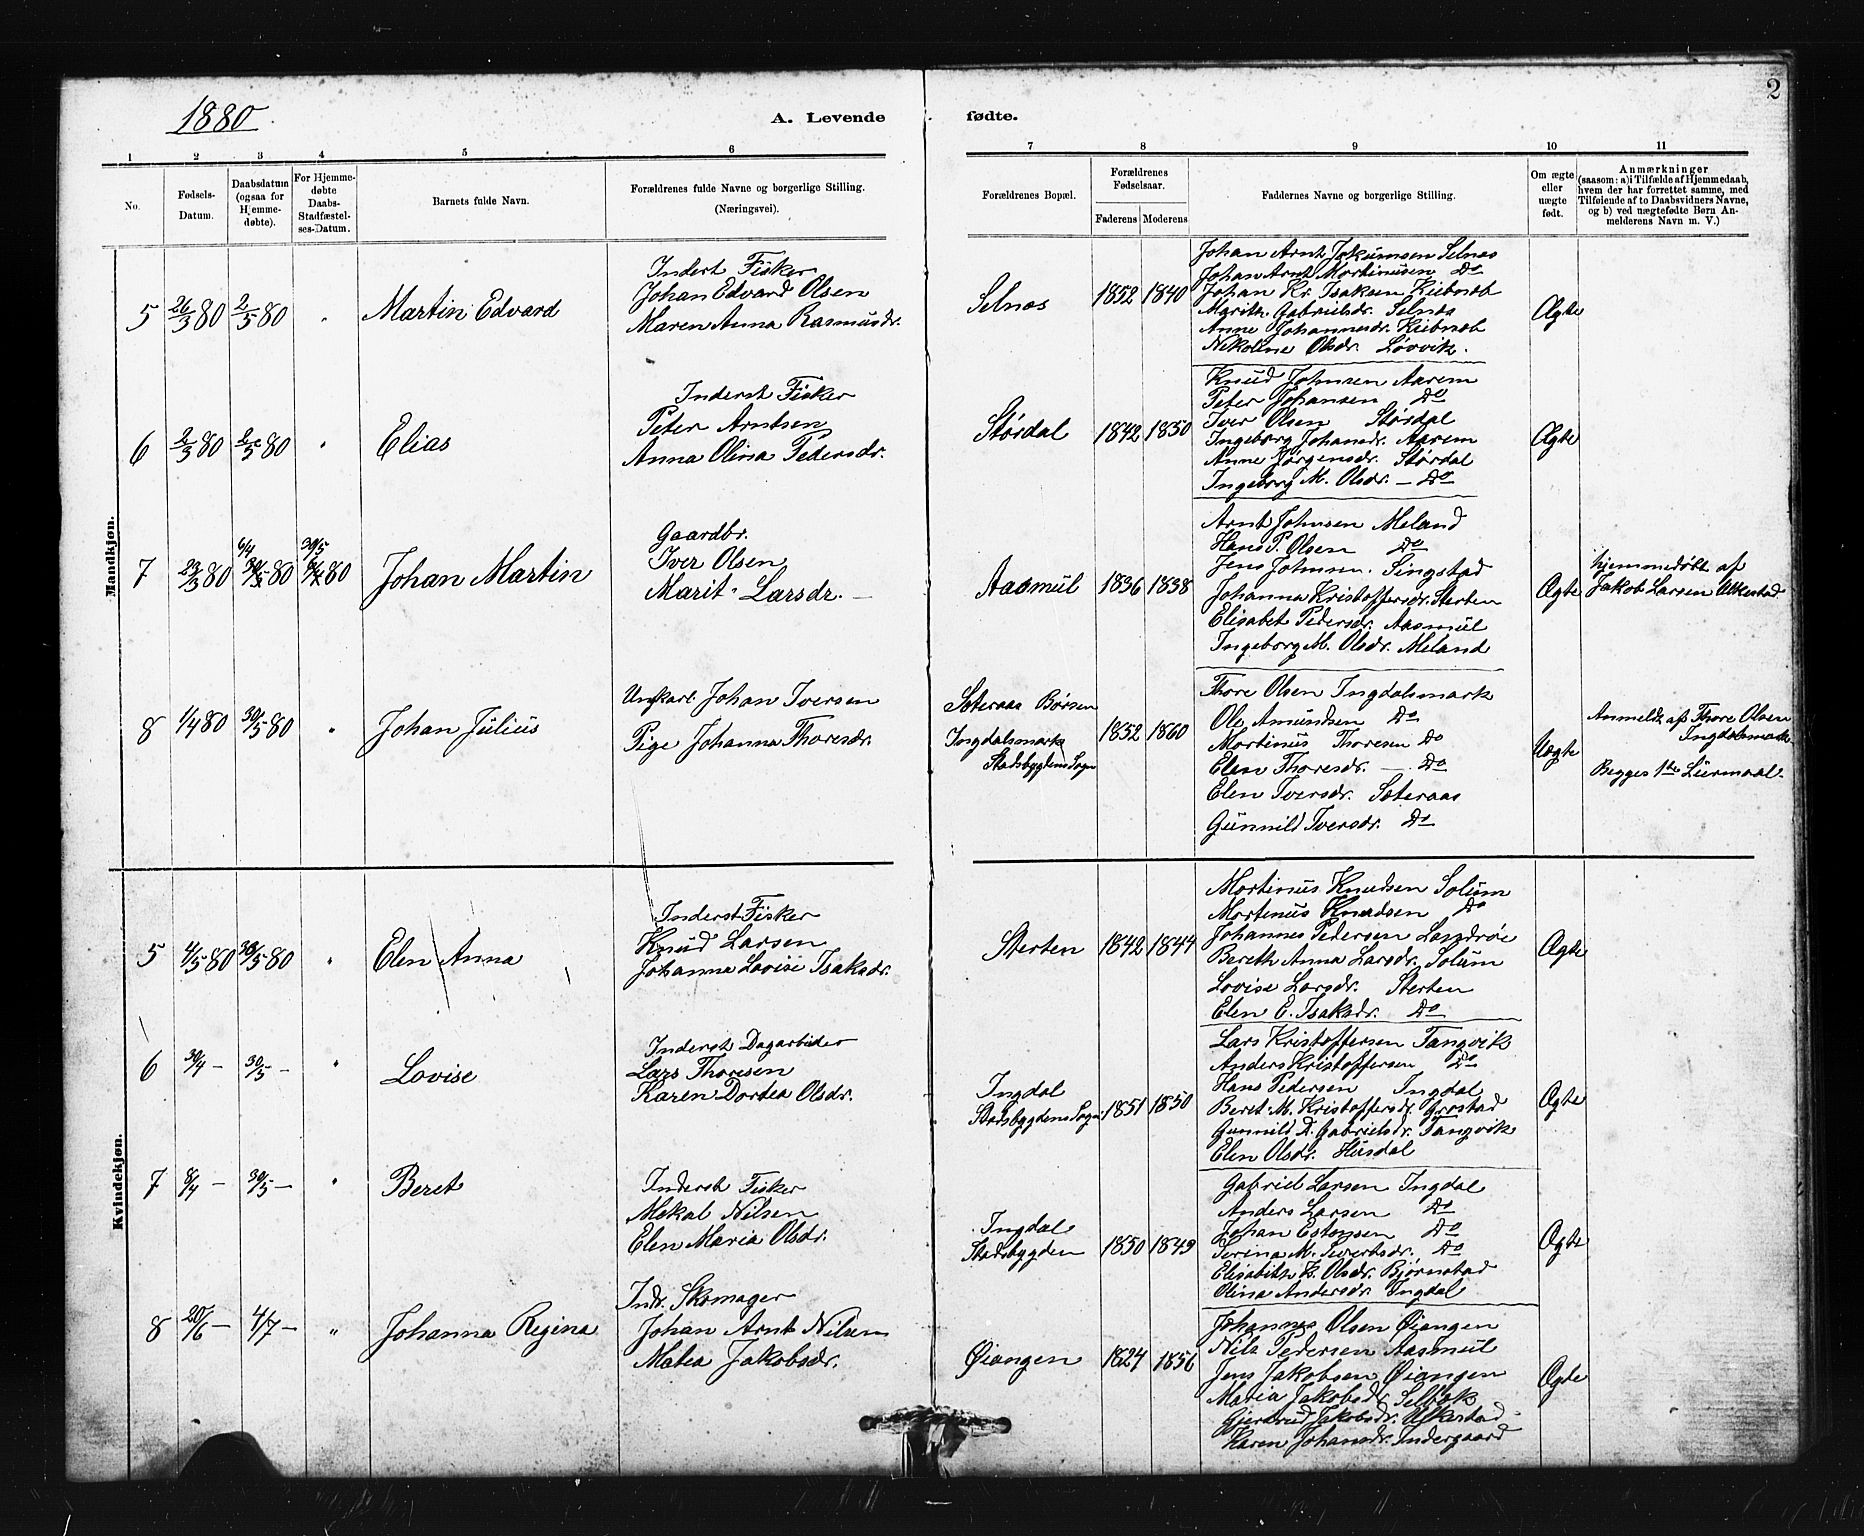 2
1880
A. Levende fødte.
1 2 3 4 5 6 7 8 9 10 11
No.
Fødsels-Datum.
Daabsdatum (ogsaa for Hjemme-døbte).
For Hjemme-døbte Daabs-Stadfæstel-ses-Datum.
Barnets fulde Navn.
Forældrenes fulde Navne og borgerlige Stilling. (Næringsvei).
Forældrenes Bopæl.
Forældrenes Fødselsaar.
Faderens Moderens
Faddernes Navne og borgerlige Stilling.
Om ægte eller uægte født.
Anmærkninger
(saasom: a) i Tilfælde af Hjemmedaab, hvem der har forrettet samme, med Tilføiende af to Daabsvidners Navne, og b) ved uægtefødte Børn An-melderens Navn m. V.)
Mandkjøn.
5 26/3 80 2/5 80 " Martin Edvard
Inderst Fisker
Johan Edvard Olsen
Maren Anna Rasmusdr.
Selnæs 1852 1840
Johan Arnt Jokumsen Selnæs
Johan Arnt Mortinusen Do
Johan Kr. Isaksen
Marith Gabrielsdr. Selnæs
Anne Johannesdr.
Nikoline Olsdr. Løvvik.
Ægte
6 2/3 80 2/5 80 " Elias
Inderst Fisker
Peter Arntsen
Anna Olina Pedersdr.
Størdal 1842 1850
Knud Johnsen Aarem
Peter Johansen Do
Iver Olsen Størdal
Ingeborg Johansdr. Aarem
Anne Jørgensdr. Størdal
Ingeborg M. Olsdr. — Do
Ægte
7 23/3 80 6/4 30/5 80 30/5 80 Johan Martin
Gaardbr.
Iver Olsen
Marit Larsdr. —
Aasmul 1836 1838
Arnt Johnsen Meland
Hans P. Olsen Do
Jens Johnsen Singstad
Johanna Kristoffersdr. Sterten
Elisabet Pedersdr. Aasmul
Ingeborg M. Olsdr. Meland
Ægte
hjemmedøbt af
Jakob Larsen Ulkestad
8 1/4 80 30/5 80 " Johan Julius
Ungkarl Johan Iversen
Pige Johanna Thoresdr.
Sæteraas Børsen
Ingdalsmark
Stadsbygdens Sogn
1852 1860
Thore Olsen Ingdalsmark
Ole Amundsen Do
Mortinus Thoresen Do
Elen Thoresdr. — Do
Elen Iversdr. Sæteraas
Gunnild Iversdr. Do
Uægte
Anmeldt af Thore Olsen
Ingdalsmark
Begges 1ste Leiermaal.
Kvindekjøn.
5 4/5 80 30/5 80 " Elen Anna
Inderst Fisker
Knud Larsen
Johanna Lovise Isaksdr.
Sterten 1842 1844
Mortinus Knudsen Solum
Mortinus Knudsen Do
Johannes Pedersen
Bereth Anna Larsdr. Solum
Lovise Larsdr. Sterten
Elen E. Isaksdr. Do
Ægte
6 30/4 — 30/5 — " Lovise
Inderst Dagarbeider
Lars Thoresen
Karen Dortea Olsdr.
Ingdal
Stadsbygdens Sogn
1851 1850
Lars Kristoffersen Tangvik
Anders Kristoffersen Do
Hans Pedersen Ingdal
Beret M. Kristoffersdr. Grøstad
Gunnild Gabrielsdr. Tangvik
Elen Olsdr. Husdal
Ægte
7 8/4 — 30/5 — " Beret
Inderst Fisker
Mekal Nilsen
Elen Maria Olsdr.
Ingdal
Stadsbygden
1850 1849
Gabriel Larsen Ingdal
Anders Larsen Do
Johan Estensen Do
Serina M. Sivertsdr. Do
Elisabeth K. Olsdr. Bjørnstad
Olina Andersdr. Ingdal
Ægte
8 20/6 — 4/7 — " Johanna Regina
Indr. Skomager
Johan Arnt Nilsen
Matea Jakobsdr.
Øiangen 1824 1856
Johannes Olsen Øiangen
Nils Pedersen Aasmul
Jens Jakobsen Øiangen
Maria Jakobsdr. Selbæk
Gjertrud Jakobsdr. Ulkestad
Karen Johansdr. Indergaard
Ægte